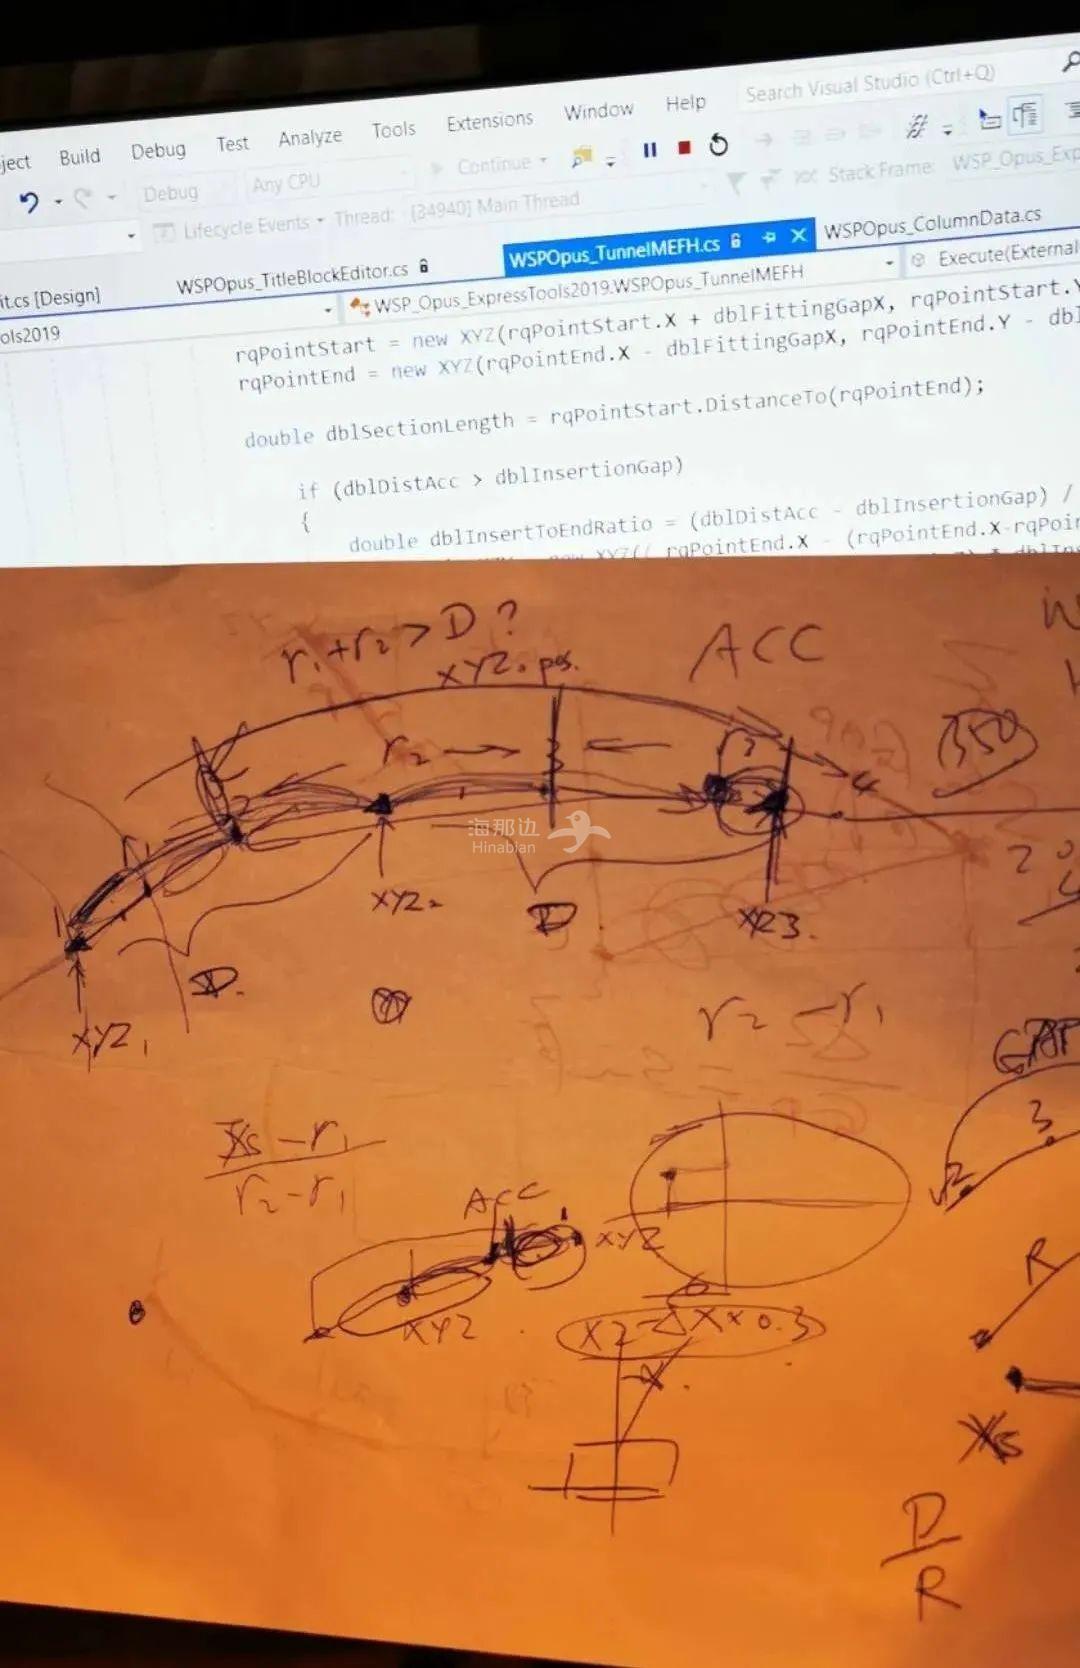 ject Build Debug Test Analyze Tools Extensions Window Help Search Visual Studio (Ctrl+Q)
Debug Any CPU Continue
Lifecycle Events Thread: [34940] Main Thread Stack Frame: WSP_Opus_Exp
it.cs [Design] WSPOpus_TitleBlockEditor.cs WSPOpus_TunnelMEFH.cs WSPOpus_ColumnData.cs
ols2019 WSP_Opus_ExpressTools2019.WSPOpus_TunnelMEFH Execute(External
rqPointStart = new XYZ(rqPointStart.X + dblFittingGapX, rqPointStart.Y
rqPointEnd = new XYZ(rqPointEnd.X - dblFittingGapX, rqPointEnd.Y - dbl
double dblSectionLength = rqPointStart.DistanceTo(rqPointEnd);
if (dblDistAcc > dblInsertionGap)
{
double dblInsertToEndRatio = (dblDistAcc - dblInsertionGap) /
new XYZ(( rqPointEnd.X - (rqPointEnd.X-rqPoin
r1+r2 > D ?
XYZ. pos.
ACC
350
r2
4
海那边
Hinabian
XYZ2
D
XYZ3.
D.
XYZ1
r2 - r1
GAP
3
Xs - r1
r2 - r1
ACC
XYZ
XYZ
R
X2 - ΔX x 0.3
Xs
D
R